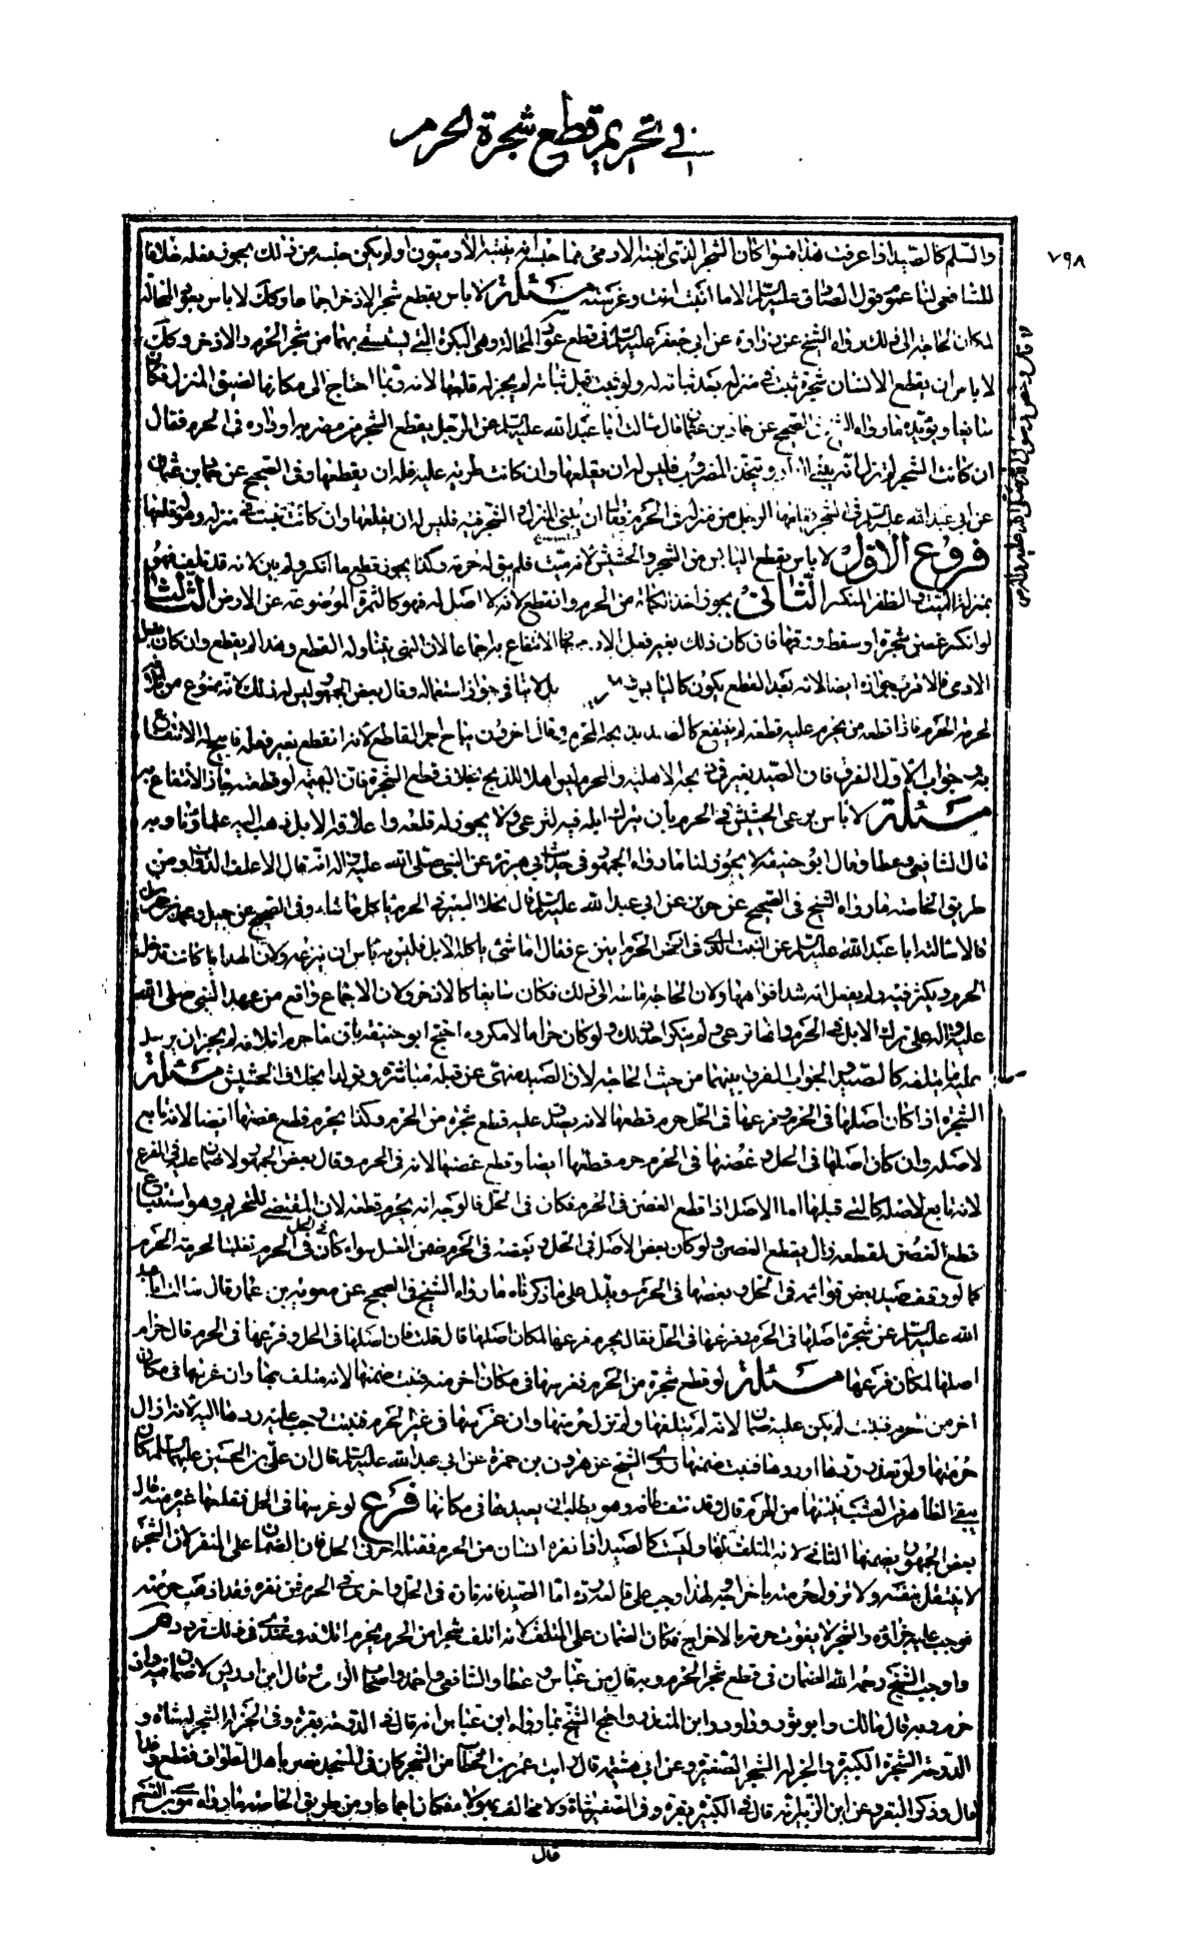 في تحريم قطع شجرة الحرم
٧٩٨
والسلم كالصيد اذا عرفت هذا فسواء كان الشجر الذي انبته الادمي مما جنسه ينبته الادميون او لم يكن جنسه من ذلك يجوز قلعه خلافا
للشافعي لنا عموم قول الصادق عليه السلم الا ما انبت انت وغرسته مسئلة لا باس بقطع شجر الاذخر اجماعا وكك لا باس بعودي المحالة
لمكان الحاجة الى ذلك رواه الشيخ عن زرارة عن ابي جعفر عليه السلم في قطع عودي المحالة وهي البكرة التي يستسقى بها من شجر الحرم والاذخر وكك
لا باس ان يقطع الانسان شجرة تنبت في منزله بعد بنائه له ولو نبت قبل بنائه لم يجز له قلعها لانه ربما احتاج الى مكانها لضيق المنزل فكان
سايغا ويؤيده ما رواه الشيخ في الصحيح عن حماد بن عثمان قال سالت ابا عبد الله عليه السلم عن الرجل يقطع الشجر من مضربه او داره في الحرم فقال
ان كانت الشجر لم تزل قبل يبني الدار ويتخذ المضرب فليس له ان يقلعها وان كانت طرية عليه فله ان يقطعها وفي الصحيح عن حماد بن عثمان
عن ابي عبد الله عليه السلم في الشجرة يقلعها الرجل من منزله في الحرم فقال ان بنى المنزل والشجر فيه فليس له ان يقلعها وان كانت نبتت في منزله وهو له قلعها
فروع الاول لا باس بقطع اليابس من الشجر والحشيش لانه ميت فلم يبق له حرمة وكذا يجوز قطع ما انكسر ولم يبن لانه قد تلف فهو
بمنزلة الميت والظفر المنكسر الثاني يجوز اخذ الكماة من الحرم وان قطع لانه لا اصل له فهو كالثمرة الموضوعة عن الارض الثالث
لو انكسر غصن شجرة او سقط ورقها فان كان ذلك بغير فعل الادمي جاز الانتفاع به اجماعا لان النهي يتناوله القطع وهذا لم يقطع وان كان بفعل
الادمي فالاقرب جوازه ايضا لانه بعد القطع يكون كاليابس بل لا ينافي جواز استعماله وقال بعض الجمهور ليس له ذلك لانه ممنوع من اتلافه
لحرمة الحرم فاذا قطعه من يحرم عليه قطعه لم ينتفع كالصيد يذبحه المحرم وقال اخرون يباح لغير القاطع لانه انقطع بغير فعله فابيح له الانتفاع
به وجواب الاول الفرق فان الصيد يعتبر في ذبحه الاهلية والمحرم ليس اهلا للذبح بخلاف قطع الشجرة فان البهيمة لو قطعته جاز الانتفاع به
مسئلة لا باس برعي الحشيش في الحرم بان يترك ابله فيه لترعى ولا يجوز له قلعه واعلافه الابل ذهب اليه علماؤنا وبه
قال الشافعي وعطا وقال ابو حنيفة لا يجوز لنا ما رواه الجمهور في حديث ابي هريرة عن النبي صلى الله عليه واله انه قال الا علف الدواب ومن
طريق الخاصة ما رواه الشيخ في الصحيح عن حريز عن ابي عبد الله عليه السلم قال يخلا البعير في الحرم ياكل ما شاء وفي الصحيح عن جميل ومحمد بن حمران
قالا سالنا ابا عبد الله عليه السلم عن النبت الذي في ارض الحرم اينزع فقال اما شئ ياكله الابل فليس به باس ان ينزعه ولان الهدايا كانت تدخل
الحرم ويكثر فيه ولم ينقل انه شد افواهها ولان الحاجة ماسة الى ذلك فكان سايغا كالاذخر ولان الاجماع واقع من عهد النبي صلى الله
عليه واله على ترك الابل في الحرم وانها ترعى ولم ينكر احد ذلك ولو كان حراما لانكروه احتج ابو حنيفة بان ما حرم اتلافه لم يجز ان يرسل
عليه ما يتلفه كالصيد والجواب الفرق بينهما من حيث الحاجة لان الصيد منهي عن قتله مباشرة وتولدا بخلاف الحشيش مسئلة
الشجرة اذا كان اصلها في الحرم وفرعها في الحل حرم قطعها لانه يصدق عليه قطع شجرة من الحرم وكذا يحرم قطع غصنها ايضا لانه تابع
لاصله وان كان اصلها في الحل وغصنها في الحرم حرم قطعها ايضا وقطع غصنها لانه في الحرم وقال بعض الجمهور لا ضمان عليه في الفرع
لانه تابع لاصله كالتي قبلها اما الاصل اذا قطع الغصن في الحرم فكان في الحل فالوجه انه يحرم قطعه لان المقتضي للتحريم وهو استتباع
قطع الغصن لقطعه زال بقطع الغصن ولو كان بعض الاصل في الحل وبعضه في الحرم ضمن الغصن سواء كان في الحل او في الحرم تغليبا لحرمة الحرم
كما لو وقف صيد بعض قوائمه في الحل وبعضها في الحرم ويدل على ما ذكرناه ما رواه الشيخ في الصحيح عن معوية بن عمار قال سالت ابا عبد
الله عليه السلم عن شجرة اصلها في الحرم وفرعها في الحل فقال يحرم فرعها لمكان اصلها قال قلت فان اصلها في الحل وفرعها في الحرم قال حرام
اصلها لمكان فرعها مسئلة لو قطع شجرة من الحرم فغرسها في مكان اخر منه فنبت ضمنها لانه متلف لها وان غرسها في مكان
اخر من الحرم فنبتت لم يكن عليه ضمان لانه لم يتلفها ولم يزل حرمتها وان غرسها في غير الحرم فنبتت وجب عليه ردها اليه لانه ازال
حرمتها ولو تعذر ردها او ردها فنبت ضمنها روى الشيخ عن هرون بن حمزة عن ابي عبد الله عليه السلم قال ان علي بن الحسين عليهما السلم كان
يتقي الطاقة من العشب ينتفها من الحرم قال وقد نتف طاقة وهو يطلب ان يعيدها في مكانها فرع لو غرسها في الحل فقلعها غيره منه قال
بعض الجمهور يضمنها الثاني لانه المتلف لها وليست كالصيد اذا نفره انسان من الحرم فقتله اخر في الحل فان الضمان على المنفر لان الشجر
لا ينتقل بنفسه ولا تزول حرمته باخراجه ولهذا وجب على قالعه رده اما الصيد فانه تارة في الحل واخرى في الحرم فمن نفره فقد اذهب حرمته
فوجب عليه جزاؤه والشجر لا يفوت حرمته بالاخراج فكان الضمان على المتلف لانه اتلف شجرا من الحرم يحرم اتلافه وعندي في ذلك تردد
واوجب الشيخ رحمه الله الضمان في قطع شجر الحرم وبه قال ابن عباس وعطا والشافعي واحمد واصحاب الراي وقال ابن ادريس لا ضمان فيه وان
حرم وبه قال مالك وابو ثور وداود وابن المنذر واحتج الشيخ بما رواه ابن عباس انه قال في الدوحة بقرة وفي الجزلة الشجر لشاة و
الدوحة الشجرة الكبيرة والجزلة الشجر الصغيرة وعن ابن هشيمة قال رايت عمر بن الخطاب من الشجر كان في المسجد يضر باهل الطواف فقطع وفدا
قال وذكر البقرة عن ابن الزبير انه قال في الكبيرة بقرة وفي الصغيرة شاة ولا مخالف لهؤلاء فكان اجماعا ومن طريق الخاصة ما رواه موسى بن القسم
قال